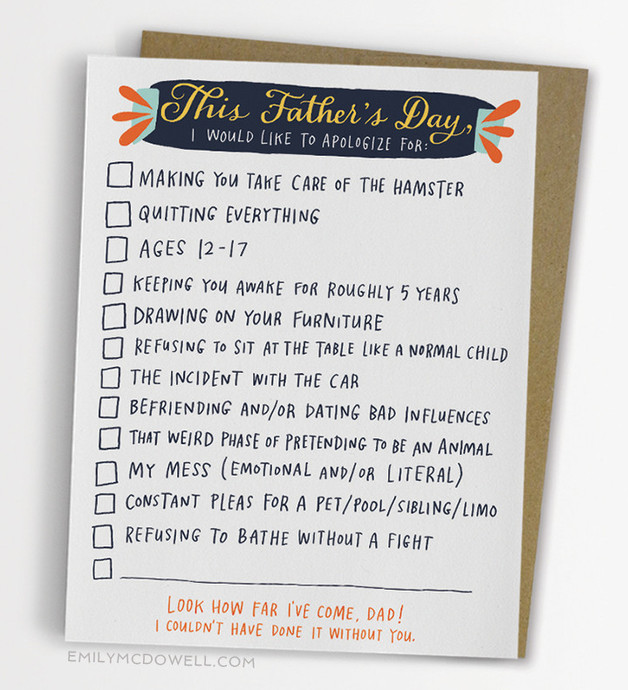 This Father's Day,
I WOULD LIKE TO APOLOGIZE FOR:
MAKING YOU TAKE CARE OF THE HAMSTER
QUITTING EVERYTHING
AGES 12-17
KEEPING YOU AWAKE FOR ROUGHLY 5 YEARS
DRAWING ON YOUR FURNITURE
REFUSING TO SIT AT THE TABLE LIKE A NORMAL CHILD
THE INCIDENT WITH THE CAR
BEFRIENDING AND/OR DATING BAD INFLUENCES
THAT WEIRD PHASE OF PRETENDING TO BE AN ANIMAL
MY MESS (EMOTIONAL AND/OR LITERAL)
CONSTANT PLEAS FOR A PET/POOL/SIBLING/LIMO
REFUSING TO BATHE WITHOUT A FIGHT
LOOK HOW FAR I'VE COME, DAD!
I COULDN'T HAVE DONE IT WITHOUT YOU.
EMILYMCDOWELL.COM